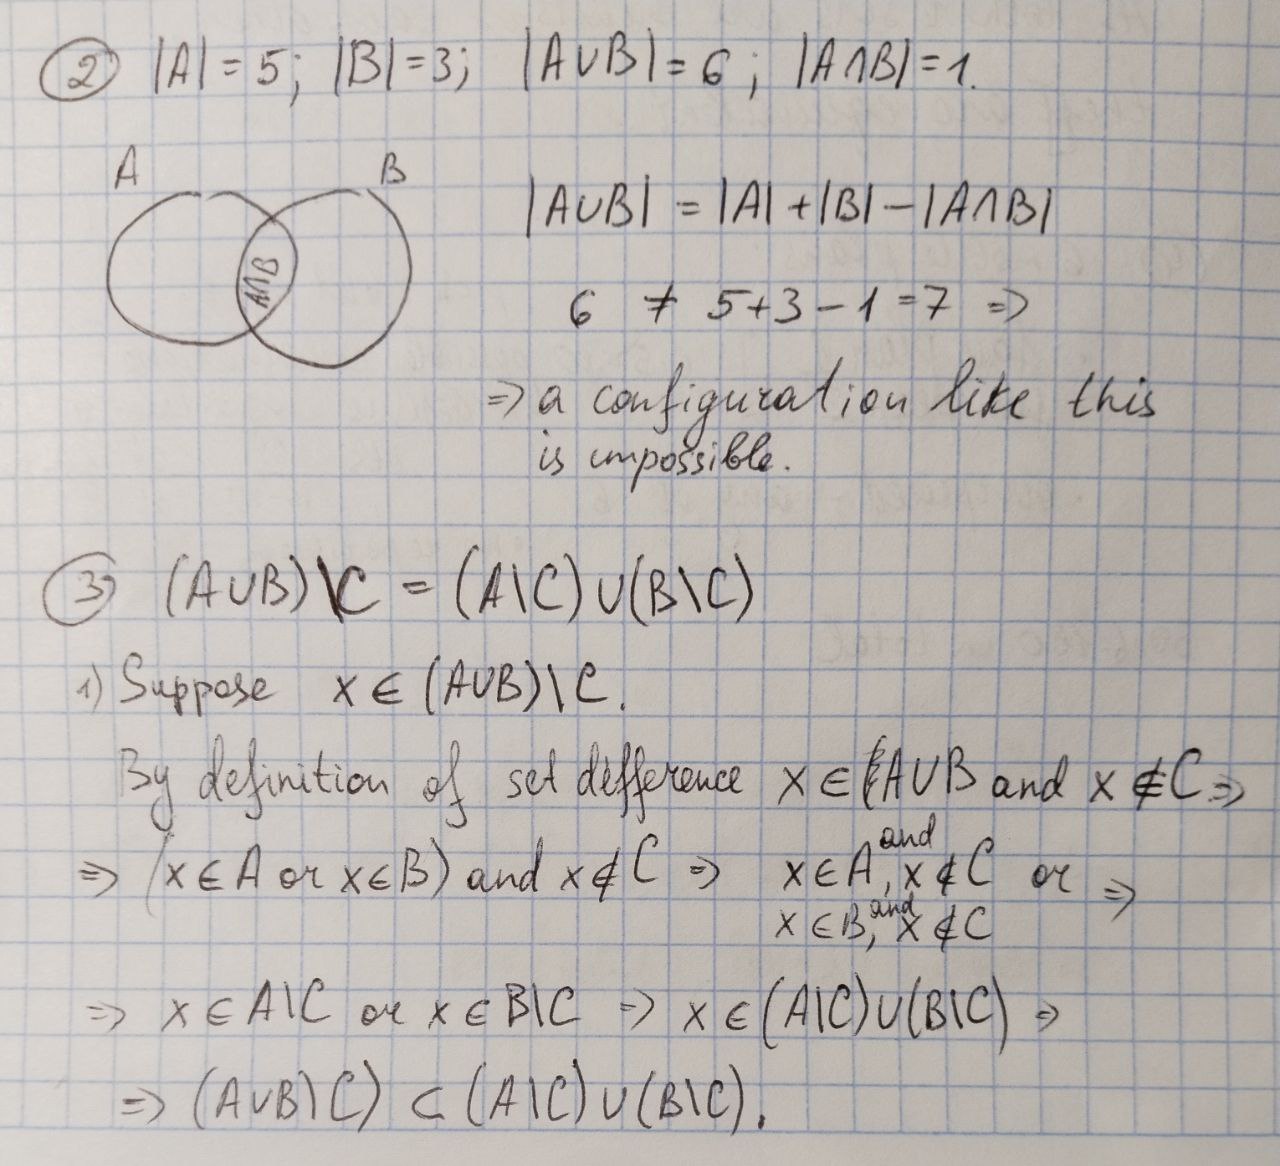 ② |A| = 5; |B| = 3; |A∪B| = 6; |A∩B| = 1.
A B
A∩B
|A∪B| = |A| + |B| - |A∩B|
6 ≠ 5+3-1 = 7 =>
=> a configuration like this
is impossible.
③ (A∪B)\C = (A\C)∪(B\C)
1) Suppose x ∈ (A∪B)\C.
By definition of set difference x ∈ A∪B and x ∉ C =>
=> (x ∈ A or x ∈ B) and x ∉ C => x ∈ A, and x ∉ C or =>
x ∈ B, and x ∉ C
=> x ∈ A\C or x ∈ B\C => x ∈ (A\C)∪(B\C) =>
=> (A∪B\C) ⊂ (A\C)∪(B\C).